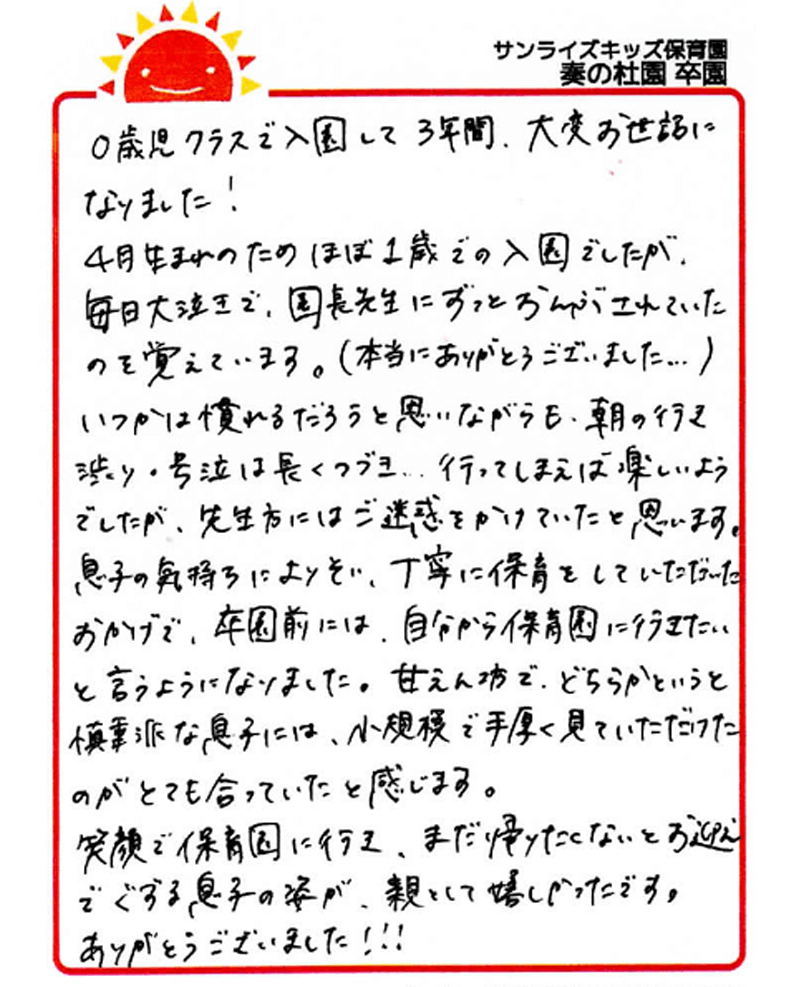 サンライズキッズ保育園
奏の杜園 卒園
0歳児クラスで入園して3年間、大変お世話に
なりました!
4月生まれのためほぼ1歳での入園でしたが、
毎日大泣きで、園長先生にずっとおんぶされていた
のを覚えています。(本当にありがとうございました…)
いつかは慣れるだろうと思いながらも、朝の行き
渋り・号泣は長くつづき…行ってしまえば楽しいよう
でしたが、先生方にはご迷惑をかけていたと思います。
息子の気持ちによりそい、丁寧に保育をしていただいた
おかげで、卒園前には、自分から保育園に行きたい
と言うようになりました。甘えん坊で、どちらかというと
慎重派な息子には、小規模で手厚く見ていただけた
のがとても合っていたと感じます。
笑顔で保育園に行き、まだ帰りたくないとお迎え
でぐずる息子の姿が、親として嬉しかったです。
ありがとうございました!!!